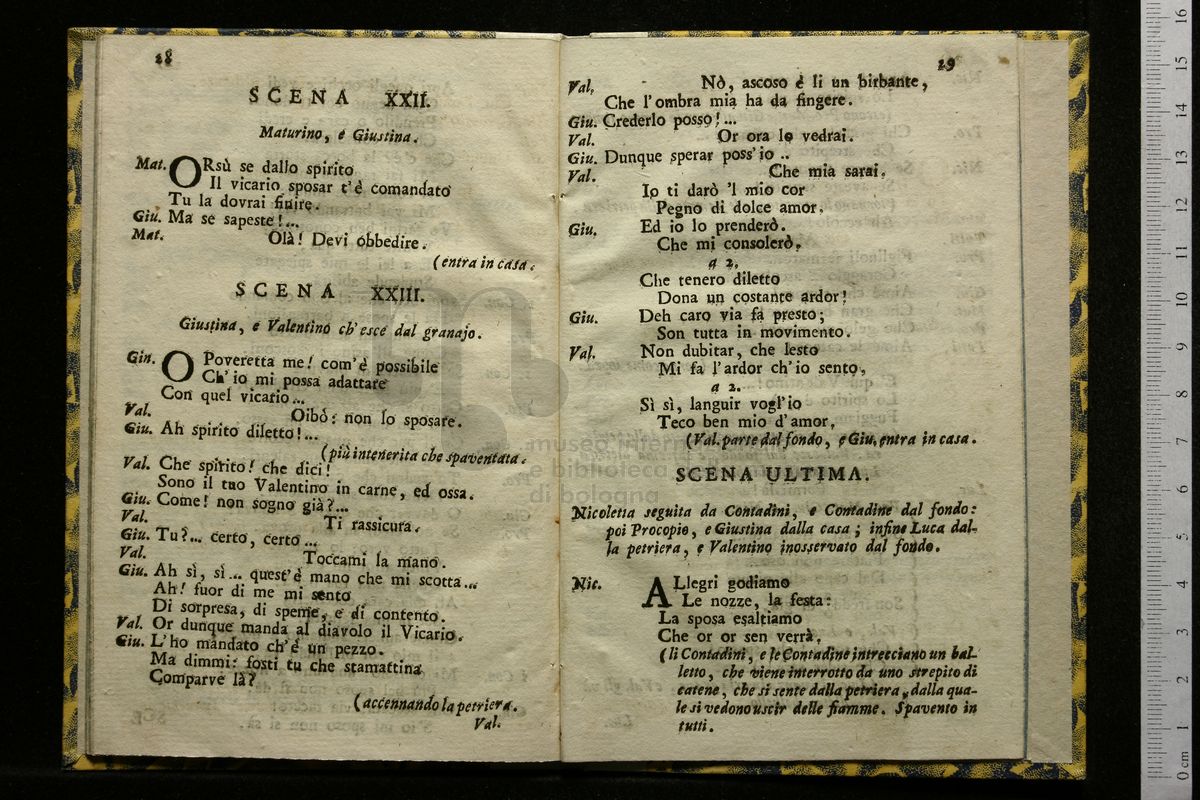 28
SCENA XXII.
Maturino, e Giustina.
Mat. ORsù se dallo spirito
Il vicario sposar t'è comandato
Tu la dovrai finire.
Giu. Ma se sapeste!...
Mat. Olà! Devi obbedire.
(entra in casa.
SCENA XXIII.
Giustina, e Valentino ch'esce dal granajo.
Giu. O Poveretta me! com'è possibile
Ch'io mi possa adattare
Con quel vicario...
Val. Oibò: non lo sposare.
Giu. Ah spirito diletto!...
(più intenerita che spaventata.
Val. Che spirito! che dici!
Sono il tuo Valentino in carne, ed ossa.
Giu. Come! non sogno già?...
Val. Ti rassicura.
Giu. Tu?... certo, certo...
Val. Toccami la mano.
Giu. Ah sì, sì... quest'è mano che mi scotta...
Ah! fuor di me mi sento
Di sorpresa, di speme, e di contento.
Val. Or dunque manda al diavolo il Vicario.
Giu. L'ho mandato ch'è un pezzo.
Ma dimmi: fosti tu che stamattina
Comparve là?
(accennando la petriera.
Val.
29
Val. Nò, ascoso è lì un birbante,
Che l'ombra mia ha da fingere.
Giu. Crederlo posso!...
Val. Or ora lo vedrai.
Giu. Dunque sperar poss'io ..
Val. Che mia sarai.
Io ti darò 'l mio cor
Pegno di dolce amor.
Giu. Ed io lo prenderò.
Che mi consolerò.
a 2.
Che tenero diletto
Dona un costante ardor!
Giu. Deh caro via fa presto;
Son tutta in movimento.
Val. Non dubitar, che lesto
Mi fa l'ardor ch'io sento.
a 2.
Sì sì, languir vogl'io
Teco ben mio d'amor.
(Val. parte dal fondo, e Giu. entra in casa.
SCENA ULTIMA.
Nicoletta seguita da Contadini, e Contadine dal fondo:
poi Procopio, e Giustina dalla casa; infine Luca dal-
la petriera, e Valentino inosservato dal fondo.
Nic. ALlegri godiamo
Le nozze, la festa:
La sposa esaltiamo
Che or or sen verrà.
(li Contadini, e le Contadine intrecciano un bal-
letto, che viene interrotto da uno strepito di
catene, che si sente dalla petriera, dalla qua-
le si vedono uscir delle fiamme. Spavento in
tutti.
museo intern
e biblioteca
di bologna
0 cm 1 2 3 4 5 6 7 8 9 10 11 12 13 14 15 16